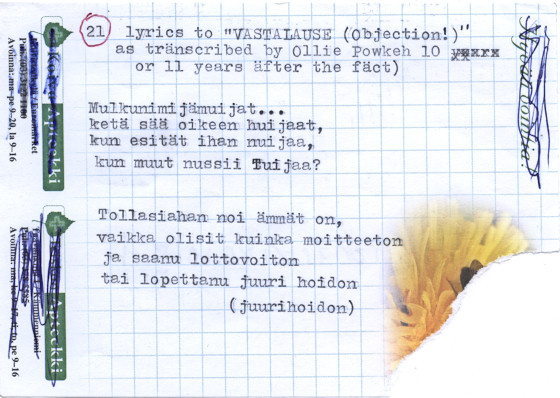 21 lyrics to "VASTALAUSE (Objection!)"
as tränscribed by Ollie Powkeh 10
or 11 years äfter the fäct)
Mulkunimijämuijat...
ketä sää oikeen huijaat,
kun esität ihan nuijaa,
kun muut nussii Tuijaa?
Tollasiahan noi ämmät on,
vaikka olisit kuinka moitteeton
ja saanu lottovoiton
tai lopettanu juuri hoidon
(juurihoidon)
Apteekki
Avoinna: ma-pe 9-20, la 9-16
Apteekki
pe 9-16